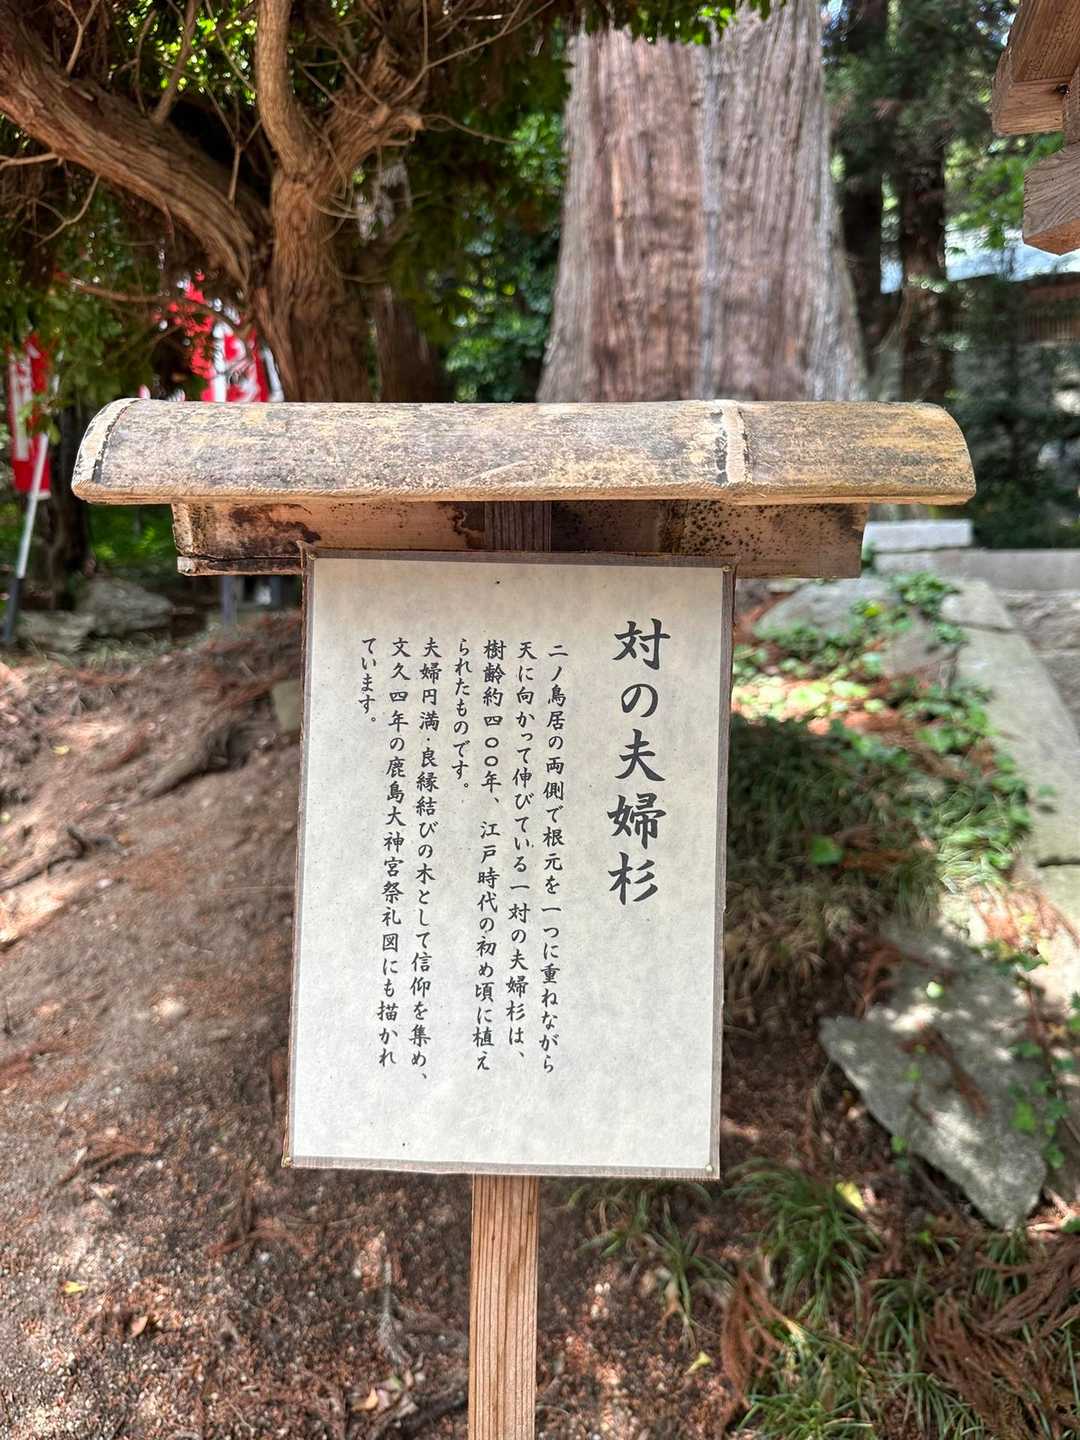 対の夫婦杉
二ノ鳥居の両側で根元を一つに重ねながら
天に向かって伸びている一対の夫婦杉は、
樹齢約四〇〇年、江戸時代の初め頃に植え
られたものです。
夫婦円満・良縁結びの木として信仰を集め、
文久四年の鹿島大神宮祭礼図にも描かれ
ています。